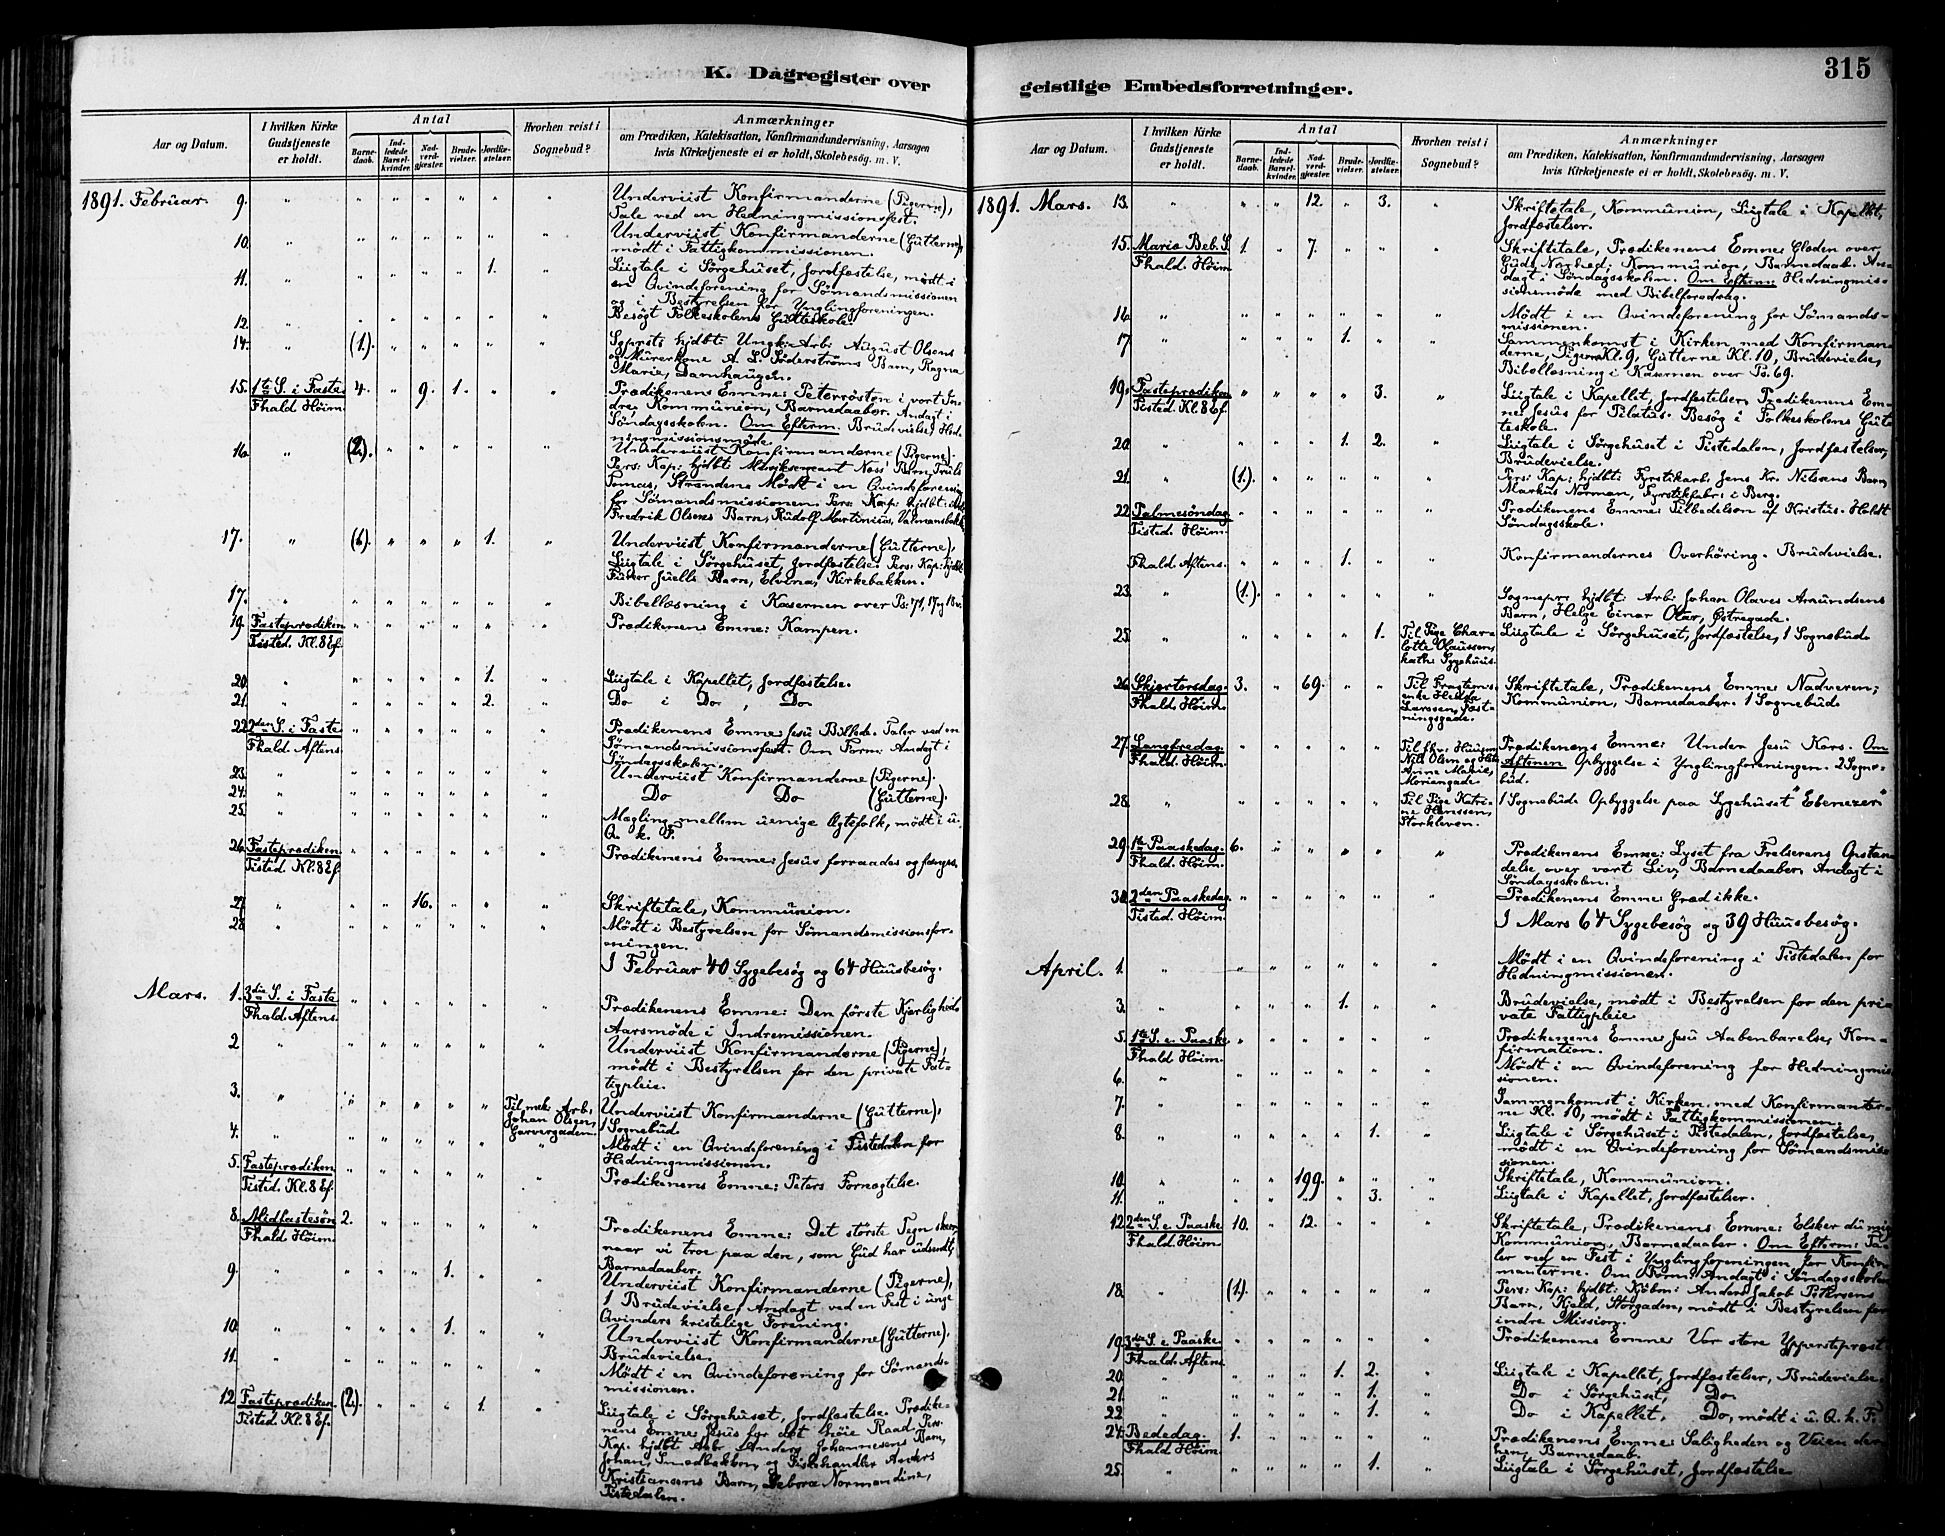 K. Dagregister over
Aar og Datum.
I hvilken Kirke Gudstjeneste er holdt.
Antal
Barnedaab.
Indledede Barselkvinder.
Nadverdgjester.
Brudevielser.
Jordfæstelser.
Hvorhen reist i Sognebud?
Anmærkninger
om Prædiken, Katekisation, Konfirmandundervisning, Aarsagen
hvis Kirketjeneste ei er holdt, Skolebesøg. m. V.
1891. Februar. 9. " " " " " " " Underviist Konfirmanderne (Pigerne),
Tale ved en Hedningmissionsfest.
10. " " " " " " " Underviist Konfirmanderne (Gutterne),
mödt i Fattigkommissionen.
11. " " " " " 1. " Liigtale i Sörgehuset, Jordfæstelse, mødt i
en Qvindeforening for Sömandsmissionen
og i Bestyrelsen for Ynglingforeningen.
12. " " " " " " " Besögt Folkeskolens Gutteskole.
14. " (1.) " " " " " Sgprsts hjdbt: Ungk: Arb: August Olsens
og Murerkone A. L. Söderströms Barn, Ragna
Marie, Damhaugen.
15. 1te S. i Faste 4. " 9. 1. " " Prædikenens Emne: Peterrösten i vort In-
Fhald Höim. dre, Kommunion, Barnedaaber. Andagt i
Söndagsskolen. Om Efterm. Brudevielse, Hed-
ningmissionsmöde.
16. " (2.) " " " " " Underviist Konfirmanderne (Pigerne).
Pers: Kap: hjdbt: Barn, Truls
Tomas, Strandene. Mödt i en Qvindeforening
for Sömandsmissionen. Pers: Kap: hjdbt:
Fredrik Olsens Barn, Rudolf Martinius,
17. " " " " 1. " Underviist Konfirmanderne (Gutterne),
Liigtale i Sörgehuset, Jordfæstelse. Pers: Kap: hjdbt:
Juells Barn, Elvina, Kirkebakken.
17. " " " " " " " Bibellæsning i Kasernen over Ps: 71, 17 og 18 v.
19. Fasteprædiken " " " " " " Prædikenens Emne: Kampen.
Tisted. Kl. 8 Ef.
20. " " " " " 1. " Liigtale i Kapellet, Jordfæstelse.
21. " " " " " 2. " Do i Do, Do
22. 2den S. i Faste " " " " " " Prædikenens Emne: Jesu Billede. Taler ved en
Fhald. Aftens. Sömandsmissionsfest. Om Form: Andagt i
Söndagsskolen.
23. " " " " " " " Underviist Konfirmanderne (Pigerne).
24. " " " " " " " Do Do (Gutterne).
25. " " " " " " " Mægling mellem uenige Ægtefolk, mödt i u.
Q. k. F.
26. Fasteprædiken " " " " " " Prædikenens Emne: Jesus forraades og fanges.
Tisted Kl. 8 Ef.
27. " " " 16. " " " Skriftetale, Kommunion.
28. " " " " " " " Mödt i Bestyrelsen for Sömandsmissionsfor-
eningen.
I Februar 40 Sygebesög og 64 Huusbesög.
Mars. 1. 3die S. i Faste " " " " " " Prædikenens Emne: Den förste Kjærlighed.
Fhald. Aftens. Aarsmöde i Indremissionen.
2. " " " " " " " Underviist Konfirmanderne (Pigerne),
mödt i Bestyrelsen for den private Fat-
tigpleie.
3. " " " " " " Til mek: Arb: Johan Olsen, Garvergaden. Underviist Konfirmanderne (Gutterne),
1 Sognebud.
4. " " " " " " " Mödt i en Qvindeforening i Tistedalen for
Hedningmissionen.
5. Fasteprædiken " " " " " " Prædikenens Emne: Peters Fornægtelse.
Tisted. Kl. 8 Ef.
8. Midfastesön 2. " " " " " Prædikenens Emne: Det störste Tegn sker
Fhald Höim. naar vi troe paa den, som Gud har udsendt,
Barnedaaber.
9. " " " " 1. " " Underviist Konfirmanderne (Pigerne),
1 Brudevielse, Andagt ved en Fest i unge
Qvinders kristelige Forening.
10. " " " " 1. " " Underviist Konfirmanderne (Gutterne),
Brudevielse.
11. " " " " " " " Mödt i en Qvindeforening for Sömands-
missionen.
12. Fasteprædiken. (2.) " " " 1. " Liigtale i Sörgehuset, Jordfæstelse. Prædike-
Tisted Kl. 8 Ef. nens Emne: Jesus for det höie Raad. Pers:
Kap: hjdbt: Arb: Anders Johannesens Barn,
Johan, og Fiskehandler Anders
Kristiansens Barn, Debora Normandine,
Tistedalen.
315
geistlige Embedsforretninger.
Aar og Datum.
I hvilken Kirke Gudstjeneste er holdt.
Antal
Barnedaab.
Indledede Barselkvinder.
Nadverdgjester.
Brudevielser.
Jordfæstelser.
Hvorhen reist i Sognebud?
Anmærkninger
om Prædiken, Katekisation, Konfirmandundervisning, Aarsagen
hvis Kirketjeneste ei er holdt, Skolebesøg. m. V.
1891. Mars. 13. " " " 12. " 3. " Skriftetale, Kommunion, Liigtale i Kapellet,
Jordfæstelser.
15. Mariæ Beb. S. 1. " 7. " " " Skriftetale, Prædikenens Emne: Glæden over
Fhald. Höim. Guds Nærhed; Kommunion, Barnedaab. An-
dagt i Söndagsskolen. Om Efterm: Hedningmis-
sionsmöde med Bibelforedrag.
16. " " " " " " " Mödt i en Qvindeforening for Sömands-
missionen.
17. " " " " 1. " " Sammenkomst i Kirken med Konfirman-
derne, Pigerne Kl. 9, Gutterne Kl. 10, Brudevielse,
Bibellæsning i Kasernen over Ps. 69.
19. Fasteprædiken " " " " 3. " Liigtale i Kapellet, Jordfæstelser, Prædikenens Em-
Tisted. Kl 8 Ef. ne: Jesus for Pilatus. Besög i Folkeskolens Gut-
teskole.
20. " " " " 1. 2. " Liigtale i Sörgehuset i Tistedalen, Jordfæstelser,
Brudevielse.
21. " (1.) " " " " " Pers: Kap: hjdbt: Fyrstikarb: Jens Kr. Nilsens Barn,
Markus Norman, Fyrstikfabr: i Berg.
22. Palmesöndag " " " " " " Prædikenens Emne: Tilbedelsen af Kristus. Holdt
Tisted. Höim. Söndagsskole.
Fhald Aftens. " " " 1. " " Konfirmandernes Overhöring. Brudevielse.
23. " (1.) " " " " " Sognepr: hjdbt: Arb: Johan Olaves Amundsens
Barn, Helge Einar Otar, Østregade.
25. " " " " " 1. Til Pige Charlotte Olaussen, kath: Sygehuus. Liigtale i Sörgehuset, Jordfæstelse, 1 Sognebud.
26. Skjærtorsdag. 3. " 69. " " Til Hedda Larssen, Fæstningsgade. Skriftetale, Prædikenens Emne: Nadveren;
Fhald. Höim. Kommunion, Barnedaaber. 1 Sognebud.
27. Langfredag. " " " " " Til fhv: Huusm: Nils Olsen og Anne Marie, Prædikenens Emne: Under Jesu Kors. Om
Fhald: Höim. Aftenen Opbyggelse i Ynglingforeningen. 2 Sogne-
bud.
28. " " " " " " Til Pige Katrine Hanssen, Storkleven. 1 Sognebud: Opbyggelse paa Sygehuset "Ebenezer"
29. 1te Paaskedag. 6. " " " " " Prædikenens Emne: Lyset fra Frelserens Opstan-
Fhald. Höim. delse over vort Liv, Barnedaaber, Andagt i
Söndagsskolen.
30. 2den Paaskedag " " " " " " Prædikenens Emne: Græd ikke.
Tisted. Höim. I Mars 64 Sygebesög og 39 Huusbesög.
April. 1. " " " " " " " Mödt i en Qvindeforening i Tistedalen for
Hedningmissionen.
3. " " " " 1. " " Brudevielse, mödt i Bestyrelsen for den pri-
vate Fattigpleie
5. 1te S. e. Paaske " " " " " " Prædikenens Emne: Jesu Aabenbarelse, Kon-
Fhald Höim. firmation.
6. " " " " " " " Mödt i en Qvindeforening for Hedningmis-
sionen.
7. " " " " " " " Sammenkomst i Kirken med Konfirmanter-
ne Kl. 10, mödt i Fattigkommissionen.
8. " " " " " 1. " Liigtale i Sörgehuset i Tistedalen, Jordfæstelse,
mödt i en Qvindeforening for Sömandsmis-
sionen.
10. " " " 199. " " " Skriftetale, Kommunion.
11. " " " " " 3. " Liigtale i Kapellet, Jordfæstelser.
12. 2den S. e. Paaske 10. " 12. " " " Skriftetale, Prædikenens Emne: Elsker du mig
Fhald. Höim Kommunion, Barnedaaber. Om Efterm: Ta-
ler ved en Fest i Ynglingforeningen for Konfir-
manterne. Om Form: Andagt i Söndagsskolen
18. " (1.) " " " " " Pers: Kap: hjdbt: Kjöbm: Anders Jakob Petersens
Barn, Kjeld, Storgaden, mödt i Bestyrelsen for
indre Mission.
19. 3die S. e. Paaske. " " " " " " Prædikenens Emne: Vor store Ypperstepræst.
Fhald. Aftens.
20. " " " " 1. 2. " Liigtale i Kapellet, Jordfæstelser, Brudevielse.
21. " " " " " 1. " Do i Sörgehuset, Do.
22. " " " " " 1. " Do i Kapellet, Do, mödt i u. Q. k. F.
24. Bededag. 1. " " " " " Prædikenens Emne: Saligheden og Veien der-
Fhald Höim. hen, Barnedaab.
25. " " " " " 1. " Liigtale i Sörgehuset, Jordfæstelse